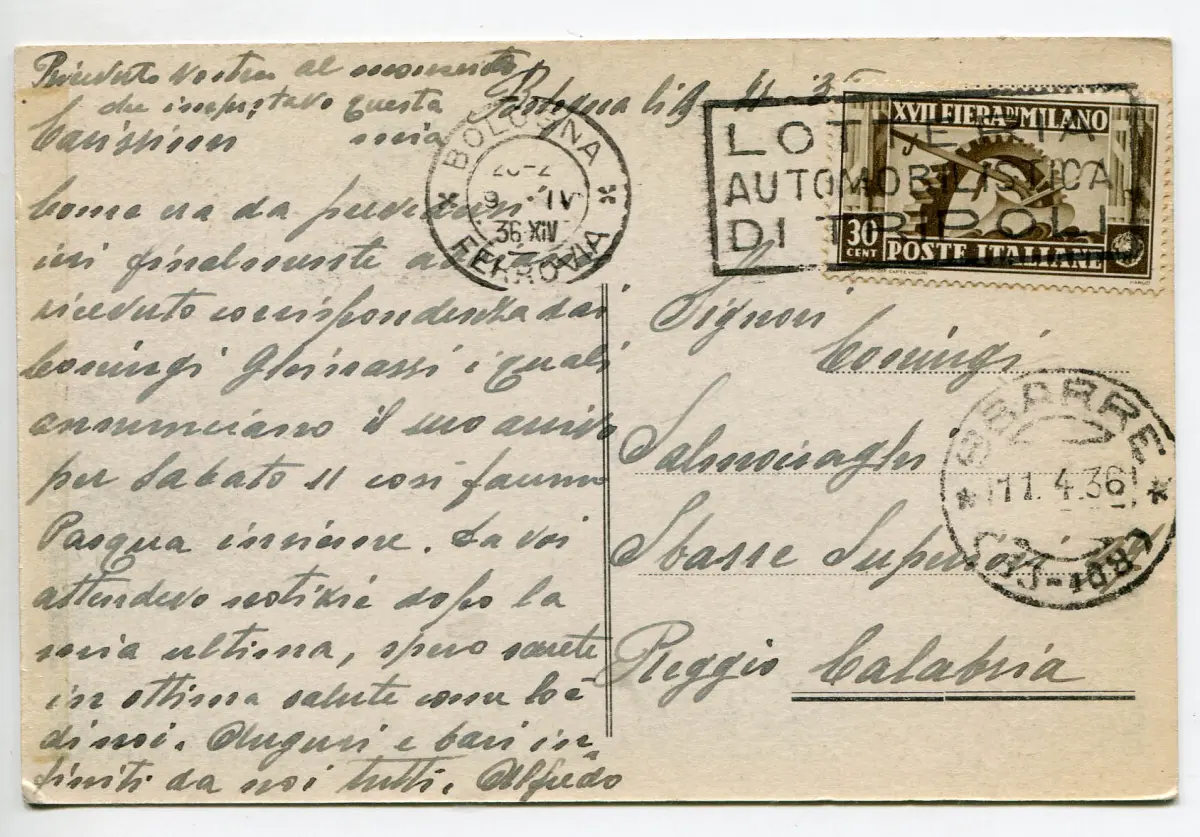 Ricevuto vostra al momento
che impostavo questa
mia
Bologna li 9-4-36
Carissimi
Come era da prevedersi
ieri finalmente
ricevuto corrispondenza dai
Comingi i quali
annunciano il suo arrivo
per Sabato 11 così faremo
Pasqua insieme. Da voi
attendevo notizie dopo la
mia ultima, spero sarete
in ottima salute come lo è
di noi. Auguri e baci in-
finiti da noi tutti. Alfredo
BOLOGNA
20-2
9 IV
36 XIV
FERROVIA
LOTTERIA
AUTOMOBILISTICA
DI TRIPOLI
XVII FIERA DI MILANO
30
CENT
POSTE ITALIANE
Signori
Comingi
Salmoiraghi
Sbarre Superiori
Reggio Calabria
SBARRE
11.4.36